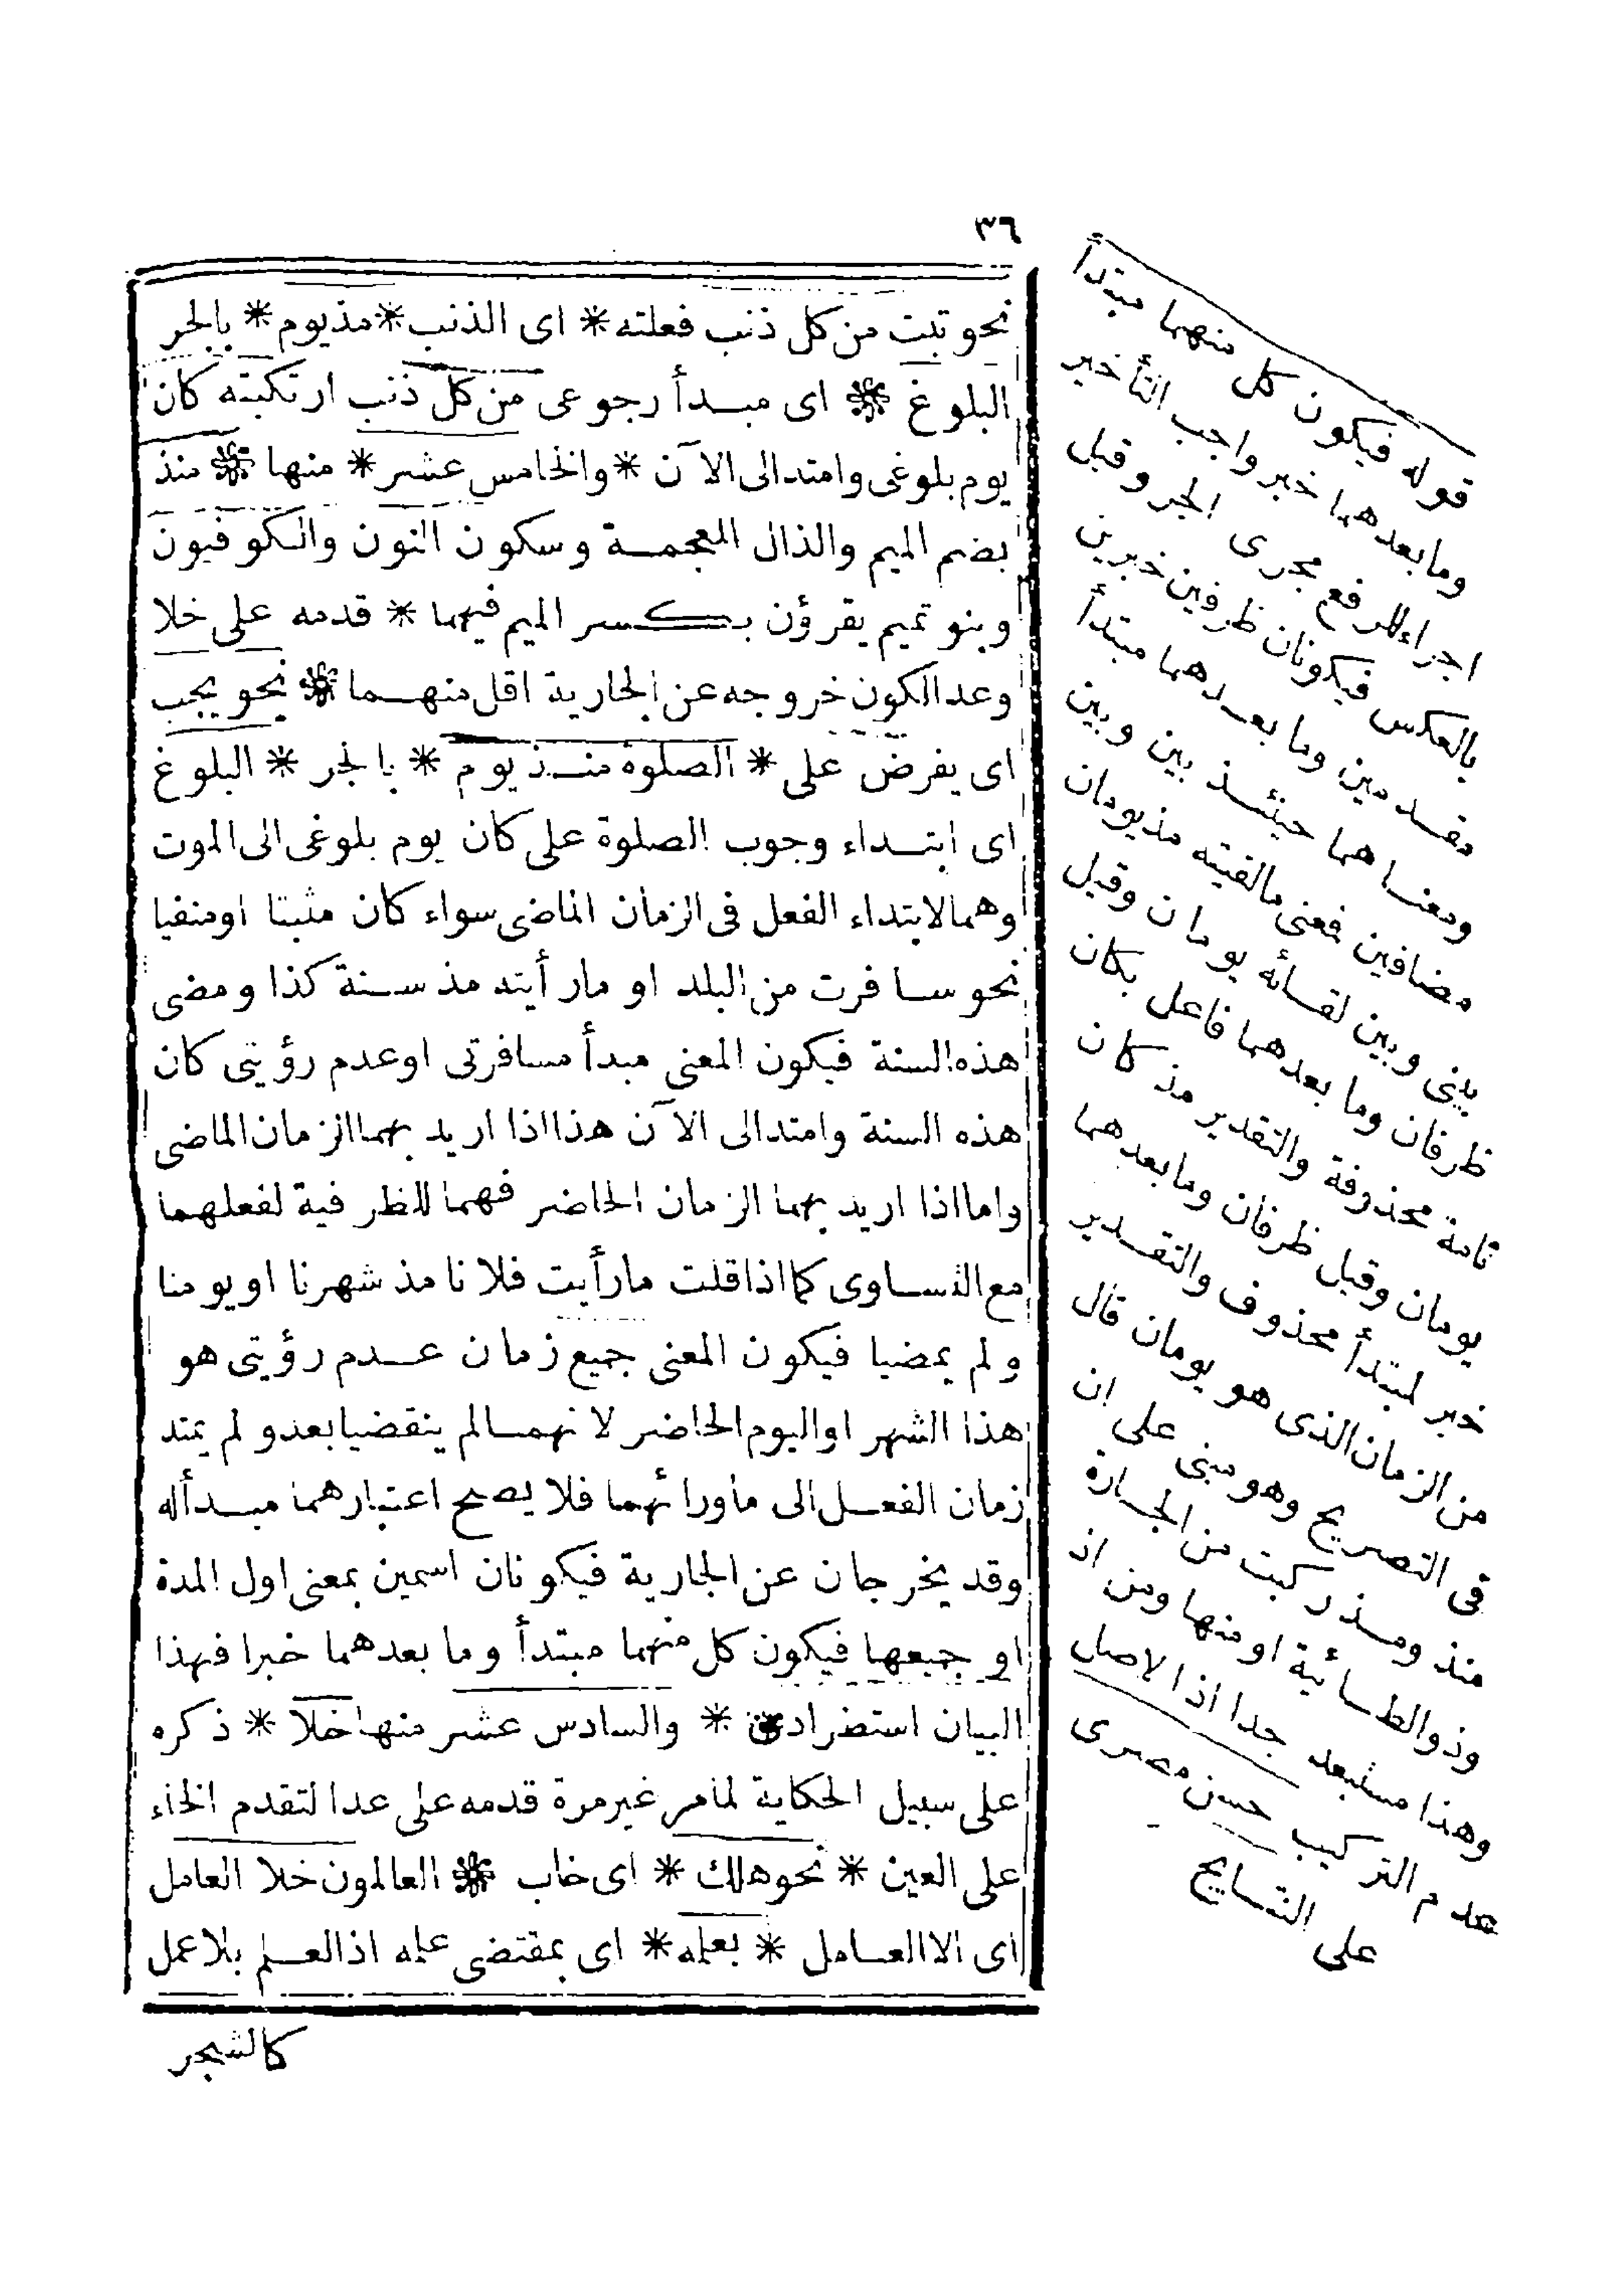 ٣٦
نحو تبت من كل ذنب فعلته * اى الذنب * مذيوم * بالجر
البلوغ * اى مبدأ رجوعى من كل ذنب ارتكبته كان
يوم بلوغى وامتد الى الآن * والخامس عشر * منها * منذ
بضم الميم والذال المعجمة وسكون النون والكوفيون
وبنو تميم يقرؤن بكسر الميم فيهما * قدمه على خلا
وعدا لكون خروجه عن الجارية اقل منهما * نحو يجب
اى يفرض على * الصلوة منذ يوم * بالجر * البلوغ
اى ابتداء وجوب الصلوة على كان يوم بلوغى الى الموت
وهما لابتداء الفعل فى الزمان الماضى سواء كان مثبتا اومنفيا
نحو سافرت من البلد او مارأيته مذ سنة كذا ومضى
هذه السنة فيكون المعنى مبدأ مسافرتى اوعدم رؤيتى كان
هذه السنة وامتد الى الآن هذا اذا اريد بهما الزمان الماضى
واما اذا اريد بهما الزمان الحاضر فهما للظرفية لفعلهما
مع التساوى كما اذا قلت مارأيت فلانا مذ شهرنا او يومنا
ولم يمضيا فيكون المعنى جميع زمان عدم رؤيتى هو
هذا الشهر اواليوم الحاضر لانهما لم ينقضيا بعد ولم يمتد
زمان الفعل الى ماورائهما فلا يصح اعتبارهما مبدأ له
وقد يخرجان عن الجارية فيكونان اسمين بمعنى اول المدة
او جميعها فيكون كل منهما مبتدأ وما بعدهما خبرا فهذا
البيان استطرادى * والسادس عشر منها خلا * ذكره
على سبيل الحكاية لمامر غير مرة قدمه على عدا لتقدم الخاء
على العين * نحو هلك * اى خاب * العالمون خلا العامل
اى الا العامل * بعلمه * اى بمقتضى علمه اذالعلم بلاعمل
كالشجر
قوله فيكون كل منهما مبتدأ
ومابعدهما خبر واجب التأخير
اجراء للرفع مجرى الجر وقيل
بالعكس فيكونان ظرفين خبرين
مقدمين وما بعدهما مبتدأ
ومعناهما حينئذ بين وبين
مضافين فعنى مالقيته مذيومان
بينى وبين لقائه يومان وقيل
ظرفان وما بعدهما فاعل بكان
تامة محذوفة والتقدير مذ كان
يومان وقيل ظرفان ومابعدهما
خبر لمبتدأ محذوف والتقدير
من الزمان الذى هو يومان قال
فى التصريح وهو مبنى على ان
منذ ومذ ركبت من الجارة
وذوالطائية اومنها ومن اذ
وهذا مستبعد جدا اذالاصل
عدم التركيب حسن مصرى
على النتايج